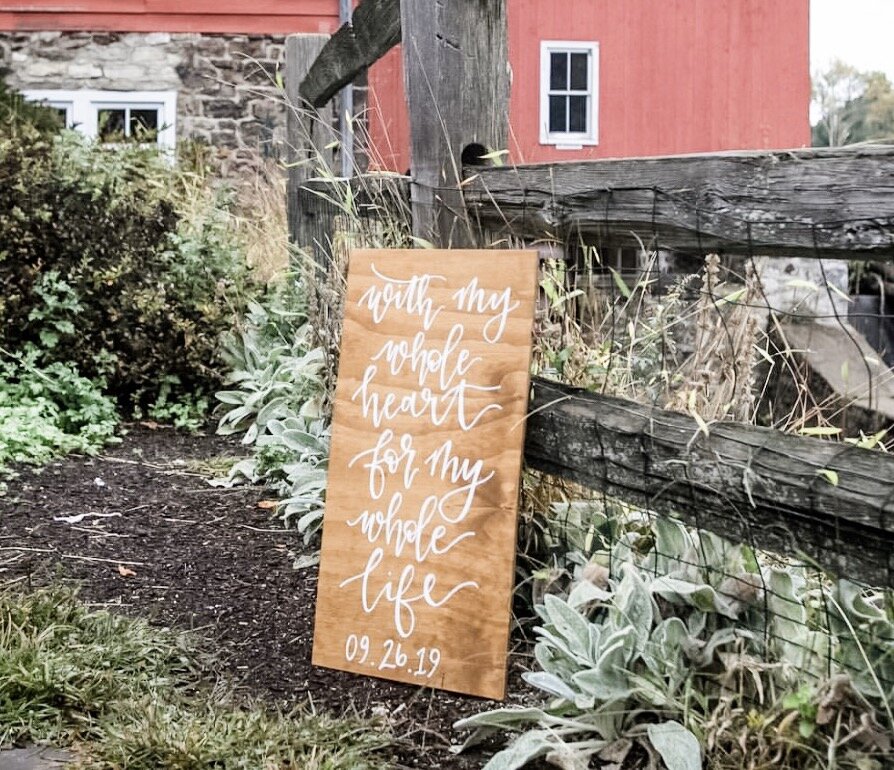 with my
whole
heart
for my
whole
life
09.26.19